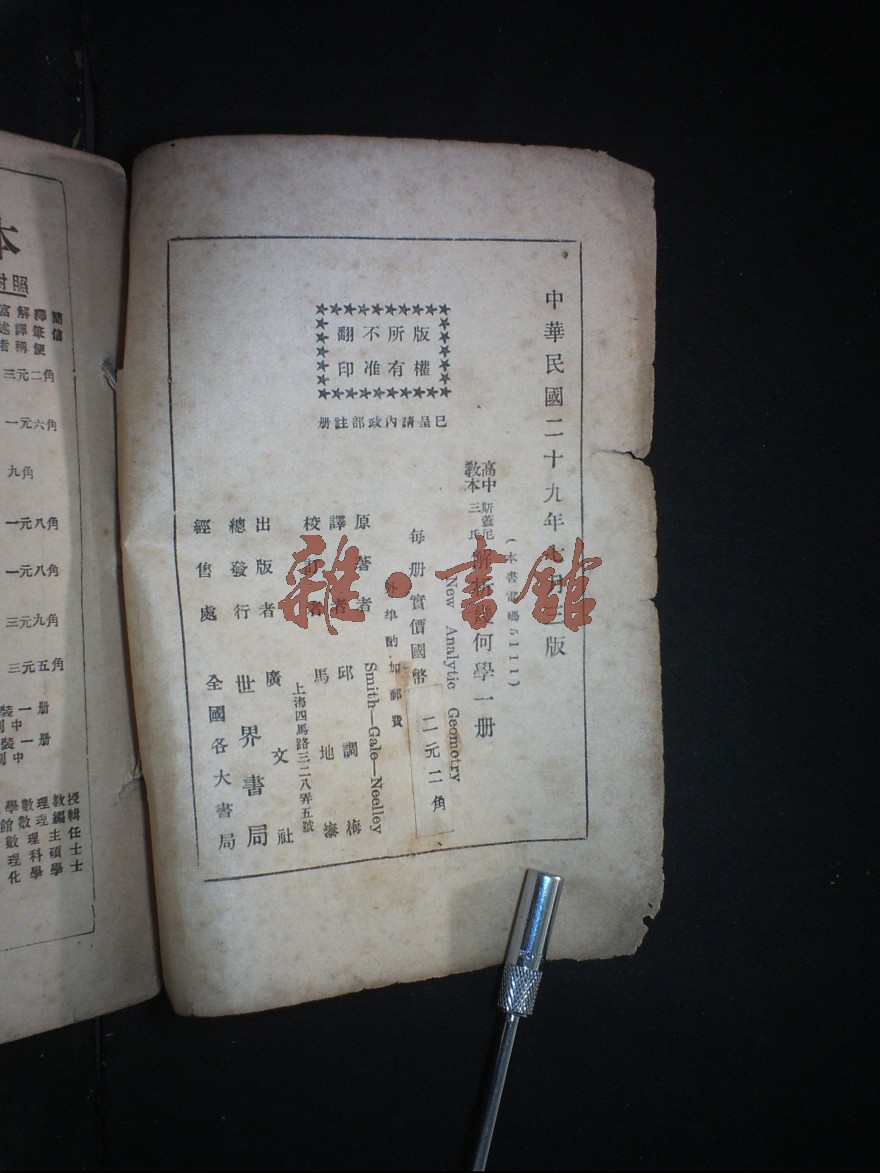 中華民國二十九年七月三版
(本書電碼5111)
版權所有
不准翻印
已呈請內政部註册
高中教本
斯蓋尼三氏
解析幾何學一册
New Analytic Geomotry
每册實價國幣
二元二角
外埠酌加郵費
原著者 Smith—Gale—Neelley
譯者 邱調梅
校訂者 馬地泰
上海四馬路三二八弄五號
出版者 廣文社
總發行 世界書局
經售處 全國各大書局
雜·書館
本
對照
三元二角
一元六角
九角
一元八角
一元八角
三元九角
三元五角
裝一册
裝一册
學數理教授
館數理編輯
數理主任
理科碩士
化學學士